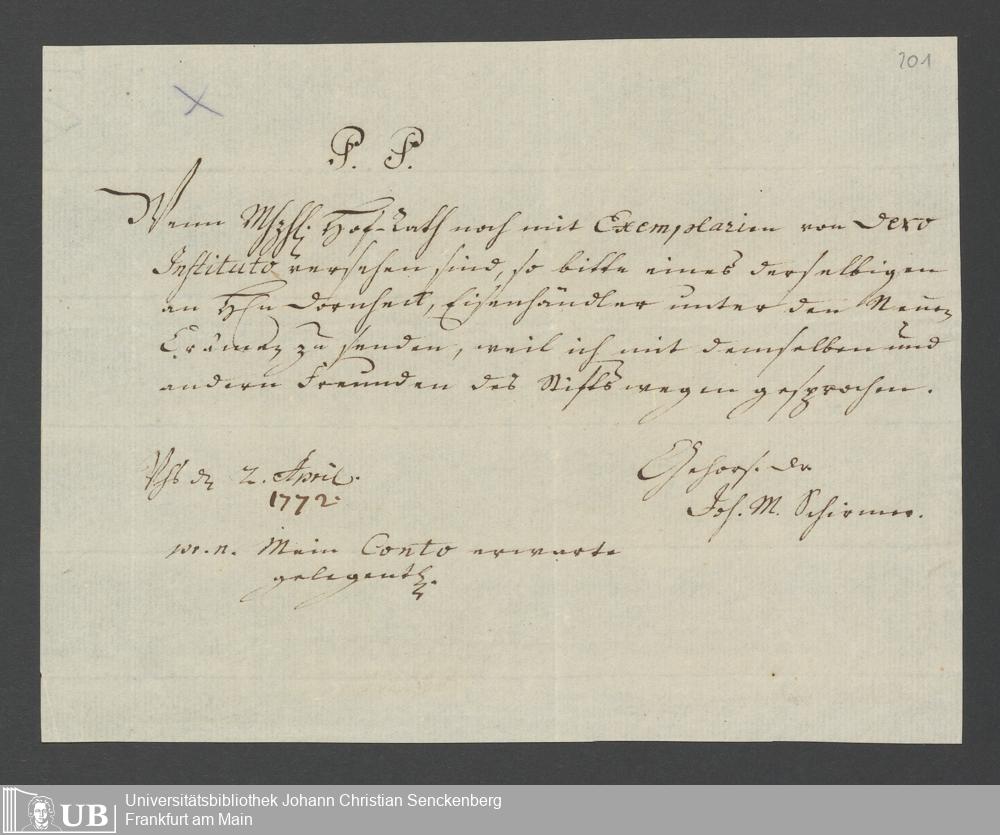 201
P. P.
Wenn Hof-Rath noch mit Exemplarien von Dero
Instituto versehen sind, so bitte eines derselbigen
an Hn Dornheck, Eisenhändler unter den Neuen
Crämen zu senden, weil ich mit demselben und
andern Freunden des Stiffts wegen gesprochen.
Gehors. Dr.
d. 2. April.
1772.
Joh. M. Schirmer.
Mein Conto erwarte
gelegentl.
UB
Universitätsbibliothek Johann Christian Senckenberg
Frankfurt am Main